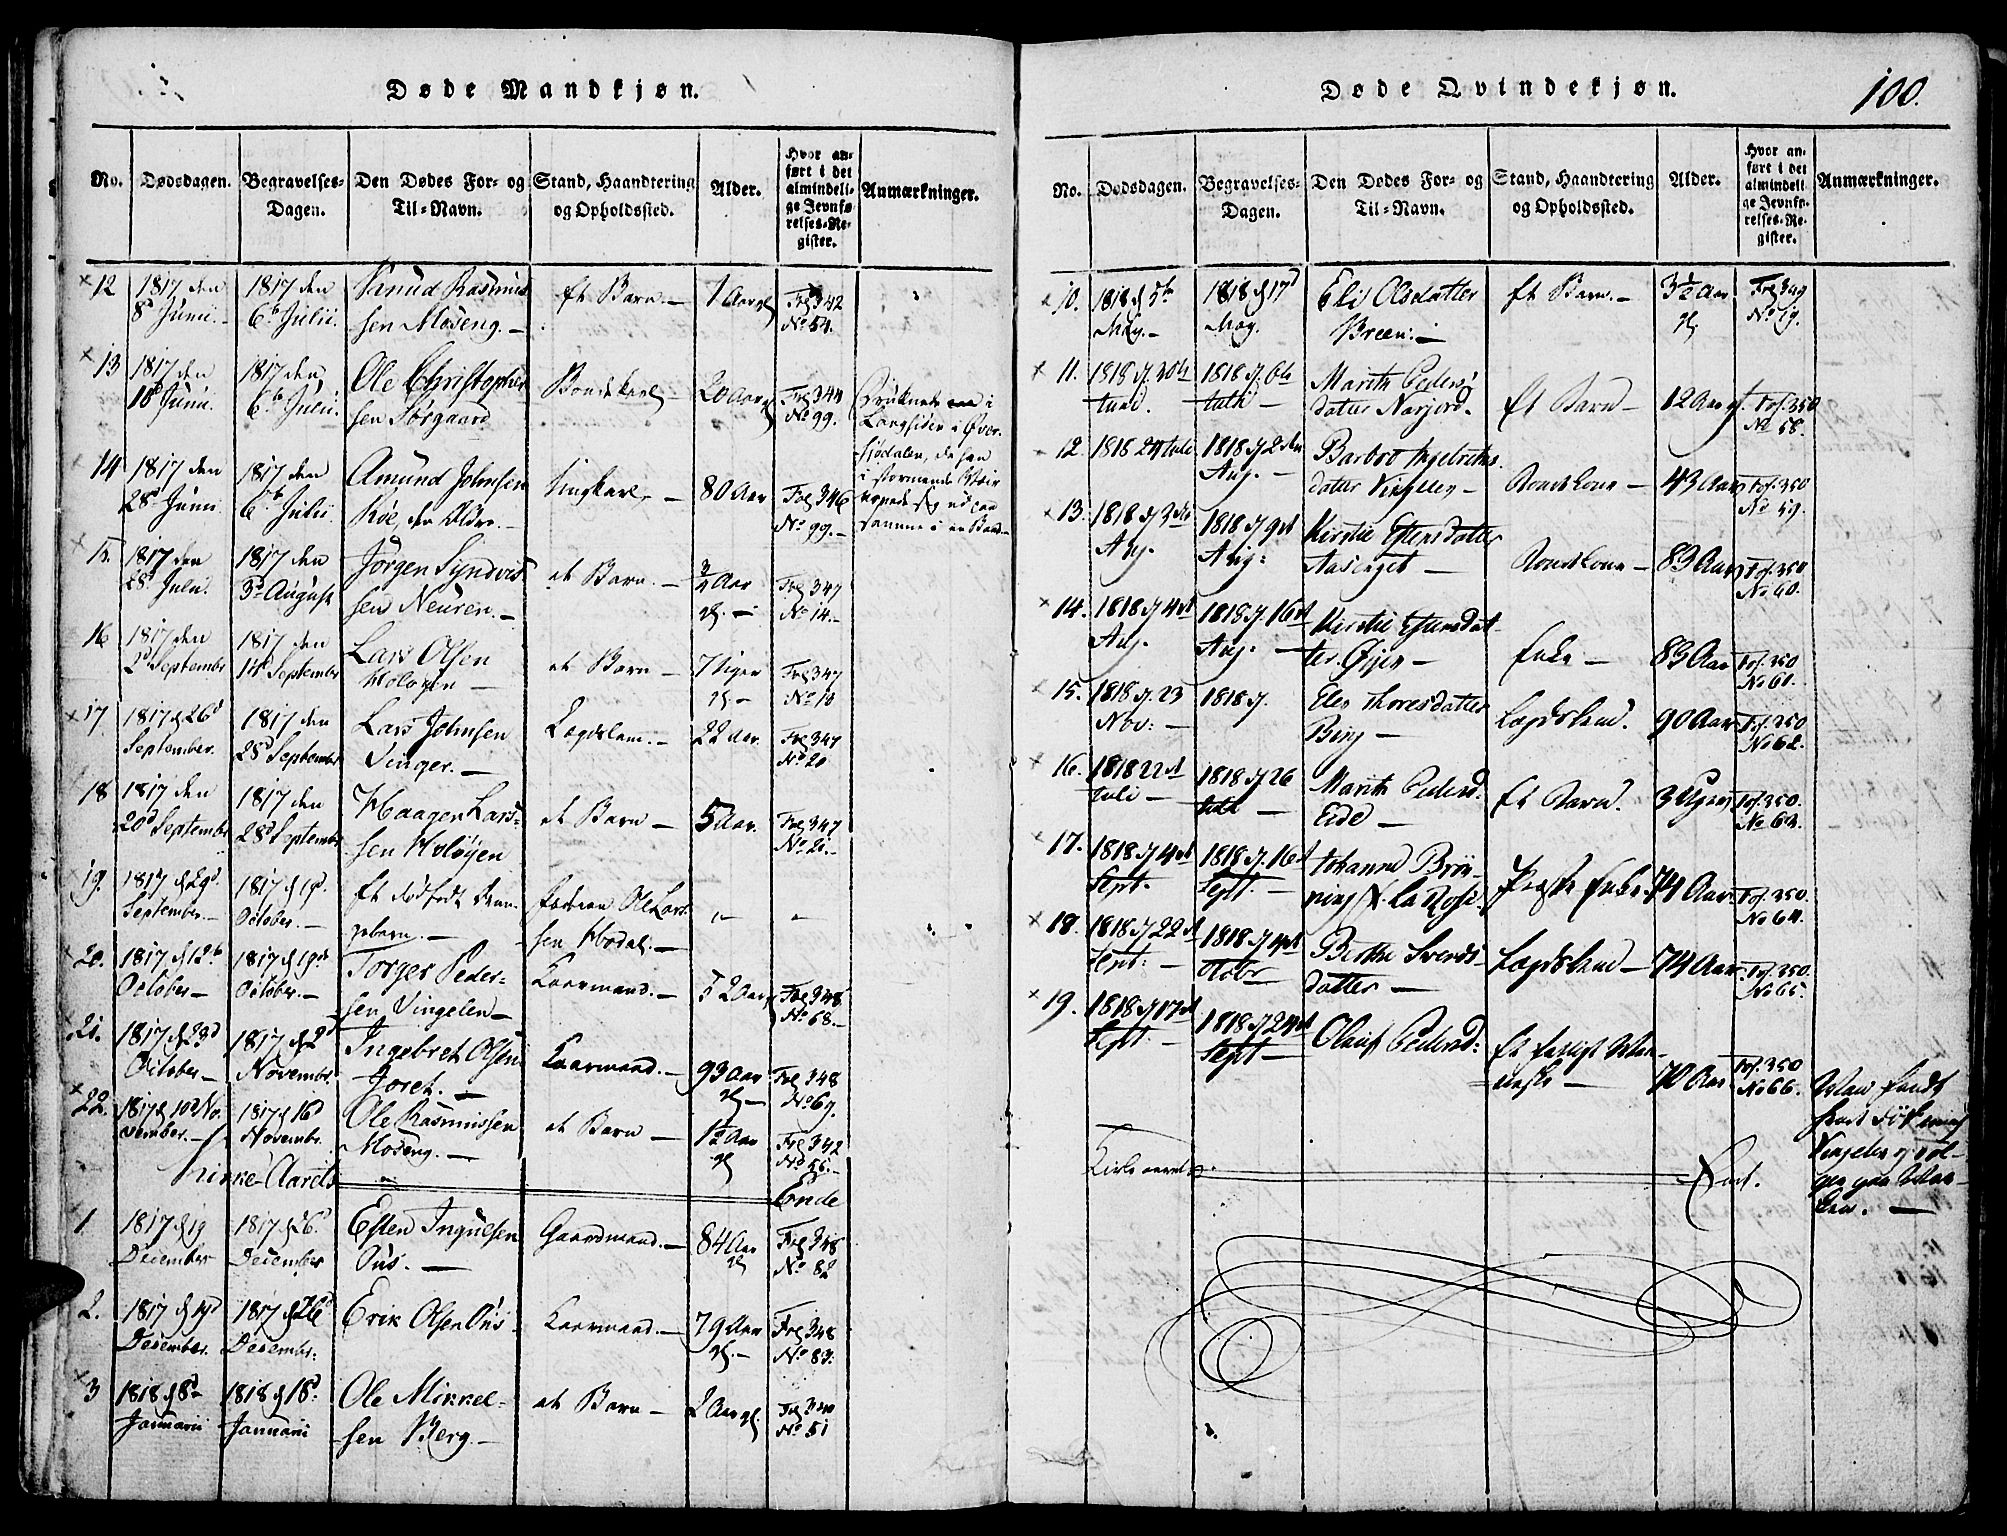 Døde Mandkjøn.
No.
Dødsdagen.
Begravelses-
Dagen.
Den Dødes For- og
Til-Navn.
Stand, Haandtering
og Opholdssted.
Alder.
Hvor an-
ført i det
almindeli-
ge Jevnfø-
relses-Re-
gister.
Anmærkninger.
12
1817 den
8d Junii.
1817 den
6te Julii.
Knud Rasmus
sen Moseng.
et Barn
1 Aar
Fol 342
No 54.
13
1817 den
18d Junii.
1817 den
6te Julii.
Ole Christopher
sen Sørgaard
Bondekarl
20 Aar
Fol 344
No 99.
Druknede i
i Øver-
14
1817 den
28d Junii
1817 den
6te Julii
Amund Johnsen
Røe, den Ældre.
80 Aar
Fol 346
No 99.
15.
1817 den
28d Julii.
1817 den
3d August
Jørgen Syndvis
sen Neuren.
et Barn.
3/4 Aar
Fol 347
No 14.
16
1817 den
2d September
1817 den
14d September
Lars Olsen
Holøyen
et Barn
7 Uger
Fol 347
No 10
17
1817 d 26d
September.
1817 den
28d September
Lars Johnsen
Vinger.
Lægdslem.
22 Aar.
Fol 347
No 20
18
1817 den
20d September
1817 den
28d September
Haagen Lars-
sen Holøyen
et Barn
5 Aar.
Fol 347
No 21.
19.
1817 d 29d
September.
1817 d 19d
October.
et dødfødt Drenge
barn.
Faderen Ole Lars
sen Hodal.
20.
1817 d 12te
October
1817 d 19d
October.
Torger Peder-
sen Vingelen
Kaarmand.
52 Aar
Fol 348
No 68.
21.
1817 d 23d
October
1817 d 2d
Novembr.
Ingebret Olsen
Joret.
Kaarmand.
93 Aar
Fol 348
No 69.
22.
1817 d 10 No-
vember.
1817 d 16d
Novembr.
Ole Rasmussen
Moseng.
et Barn
1 1/2 Aar
Fol 342
No 56.
Kirke-Aarets
Ende
1
1817 d 19
December
1817 d 26d
December
Esten Ingulsen
Øus.
Gaardmand.
84 Aar
Fol 348
No 82
2.
1817 d 19d
December.
1817 d 26d
December.
Erik Olsen Øus
Kaarmand.
79 Aar
Fol 348
No 83.
3
1818 d 8d
Januarii
1818 d 18d.
Januarii
Ole Mikkel-
sen Berg.
et Barn
2 Aar
Fol 340
No 51
Døde Qvindekjøn.
100.
No.
Dødsdagen.
Begravelses-
Dagen.
Den Dødes For- og
Til-Navn.
Stand, Haandtering
og Opholdssted.
Alder.
Hvor an-
ført i det
almindeli-
ge Jevnfø-
relses-Re-
gister.
Anmærkninger.
10.
1818 d 5te
May.
1818 d 17d
May.
Eli Olsdatter
Breen.
et Barn.
3 1/2 Aar
Fol 349
No 19.
11.
1818 d. 30te
Juni.
1818 d. 6te
Juli
Marith Peders
datter Narjord
et Barn
12 Aar
Fol. 350
No 58.
12.
1818 24 Juli
1818 d 2den
Aug.
Barbro Ingebrethsdatter Vingelen
Bondekone
43 Aar
Fol. 350
No 59.
13.
1818 d 3die
Aug.
1818 d 9de
Aug:
Kirstie Estensdatter
Aasenget
Bondekone
83 Aar
Fol. 350
No 60.
14.
1818 d 4de
Aug.
1818 d. 16de
Aug.
Kirstie Estensdat-
ter Øyen
Enke
83 Aar
Fol. 350
No 61.
15.
1818 d. 23
Nov:
1818 d.
Eles Thoresdatter
Berg
Lægdslem.
90 Aar
Fol. 350
No 62.
16.
1818 22de
Juli
1818 d 26
Juli
Marith Pedersd.
Eide
et Barn.
3 Uger
Fol. 350.
No 63.
17.
1818 d 4de
Sept.
1818 d. 16de
Sept.
Johanne Brøn-
ning
Præste Enke
74 Aar
Fol. 350
No 64.
18.
1818 d 22de
Sept:
1818 d 4de
Otobr
Berthe Svends-
datter
Lægdslem
74 Aar
Fol. 350.
No 65.
19.
1818 d 17de
Sept:
1818 d 24de
Sept
Oluf Pedersd:
et fattigt Men-
neske
70 Aar
Fol. 350
No 66.
Kirkeaarets
Ende.